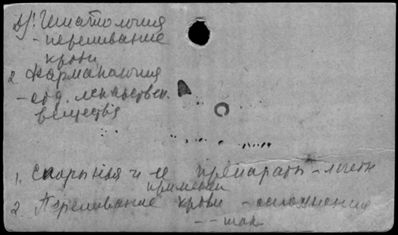 1) Гематология
- переливание
крови
2 Фармакология
- отд. лекарствен.
веществ
1. Спорынья и ее препараты -
примен
2. Переливание крови - осложнения
-- шок